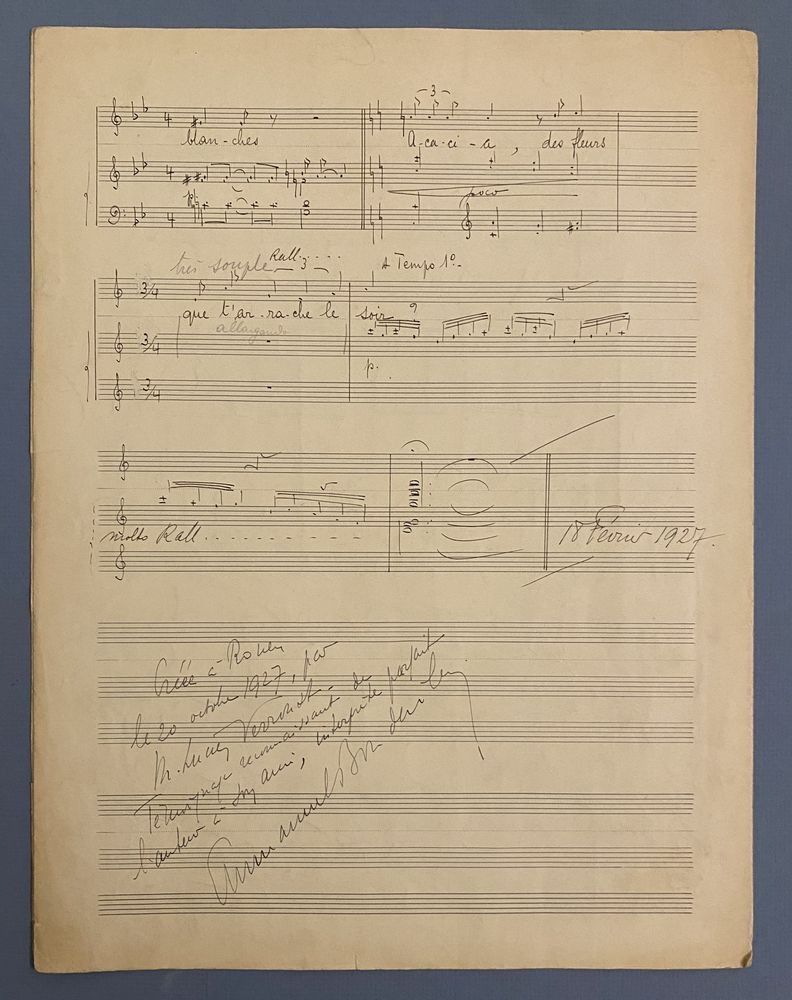 blan-ches A-ca-ci-a, des fleurs
3
4 4
poco
4
très souple Rall..... A Tempo 1º.-
3
3/4 que t'ar-ra-che le soir
allargando
3/4 9
p.
3/4
molto Rall..........
18 Février 1927.
Créé à Rouen
le 20 octobre 1927, par
M. Lucien
Témoignage reconnaissant de
l'auteur à son ami, interprète parfait
Emmanuel